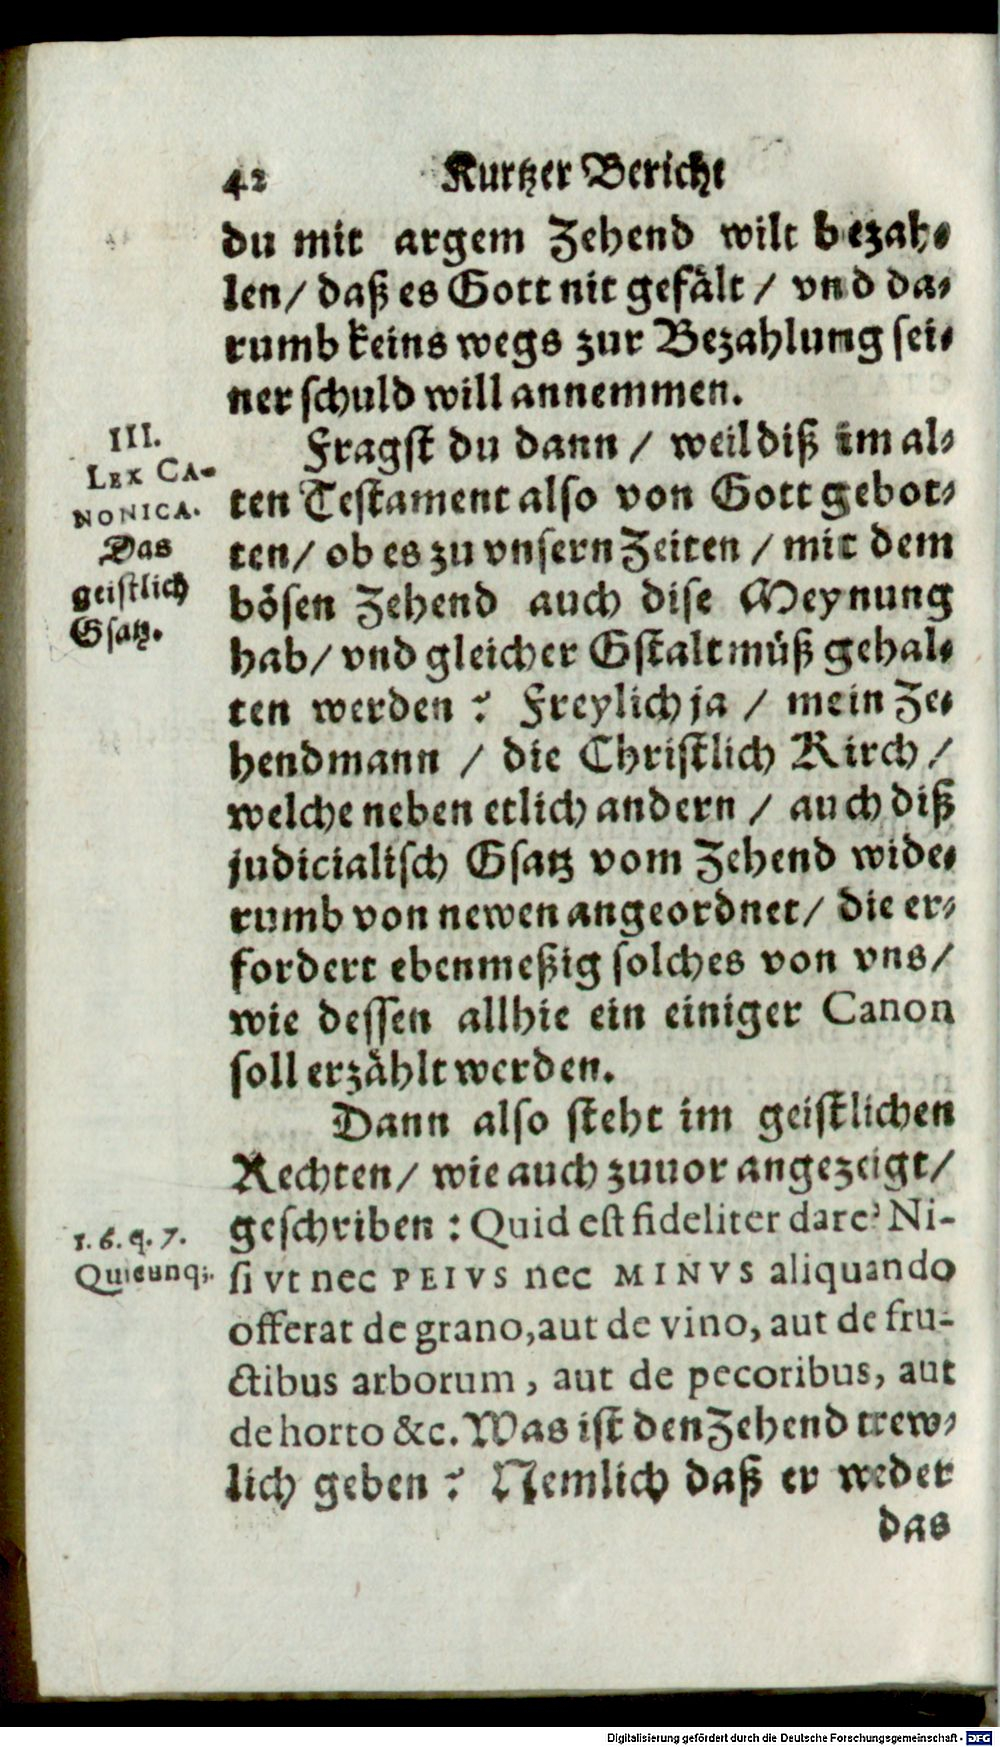 42 Kurtzer Bericht
du mit argem Zehend wilt bezah-
len/ daß es Gott nit gefält/ vnd da-
rumb keins wegs zur Bezahlung sei-
ner schuld will annemmen.
III.
LEX CA-
NONICA.
Das
geistlich
Gsatz.
Fragst du dann/ weil diß im al-
ten Testament also von Gott gebot-
ten/ ob es zu vnsern Zeiten/ mit dem
bösen Zehend auch dise Meynung
hab/ vnd gleicher Gstalt müß gehal-
ten werden? Freylich ja/ mein Ze-
hendmann/ die Christlich Kirch/
welche neben etlich andern/ auch diß
judicialisch Gsatz vom Zehend wide-
rumb von newen angeordnet/ die er-
fordert ebenmeßig solches von vns/
wie dessen allhie ein einiger Canon
soll erzählt werden.
Dann also steht im geistlichen
Rechten/ wie auch zuuor angezeigt/
1. 6. q. 7.
Quicunq;.
geschriben: Quid est fideliter dare? Ni-
si vt nec PEIVS nec MINVS aliquando
offerat de grano, aut de vino, aut de fru-
ctibus arborum, aut de pecoribus, aut
de horto &c. Was ist den Zehend trew-
lich geben? Nemlich daß er weder
das
Digitalisierung gefördert durch die Deutsche Forschungsgemeinschaft - DFG